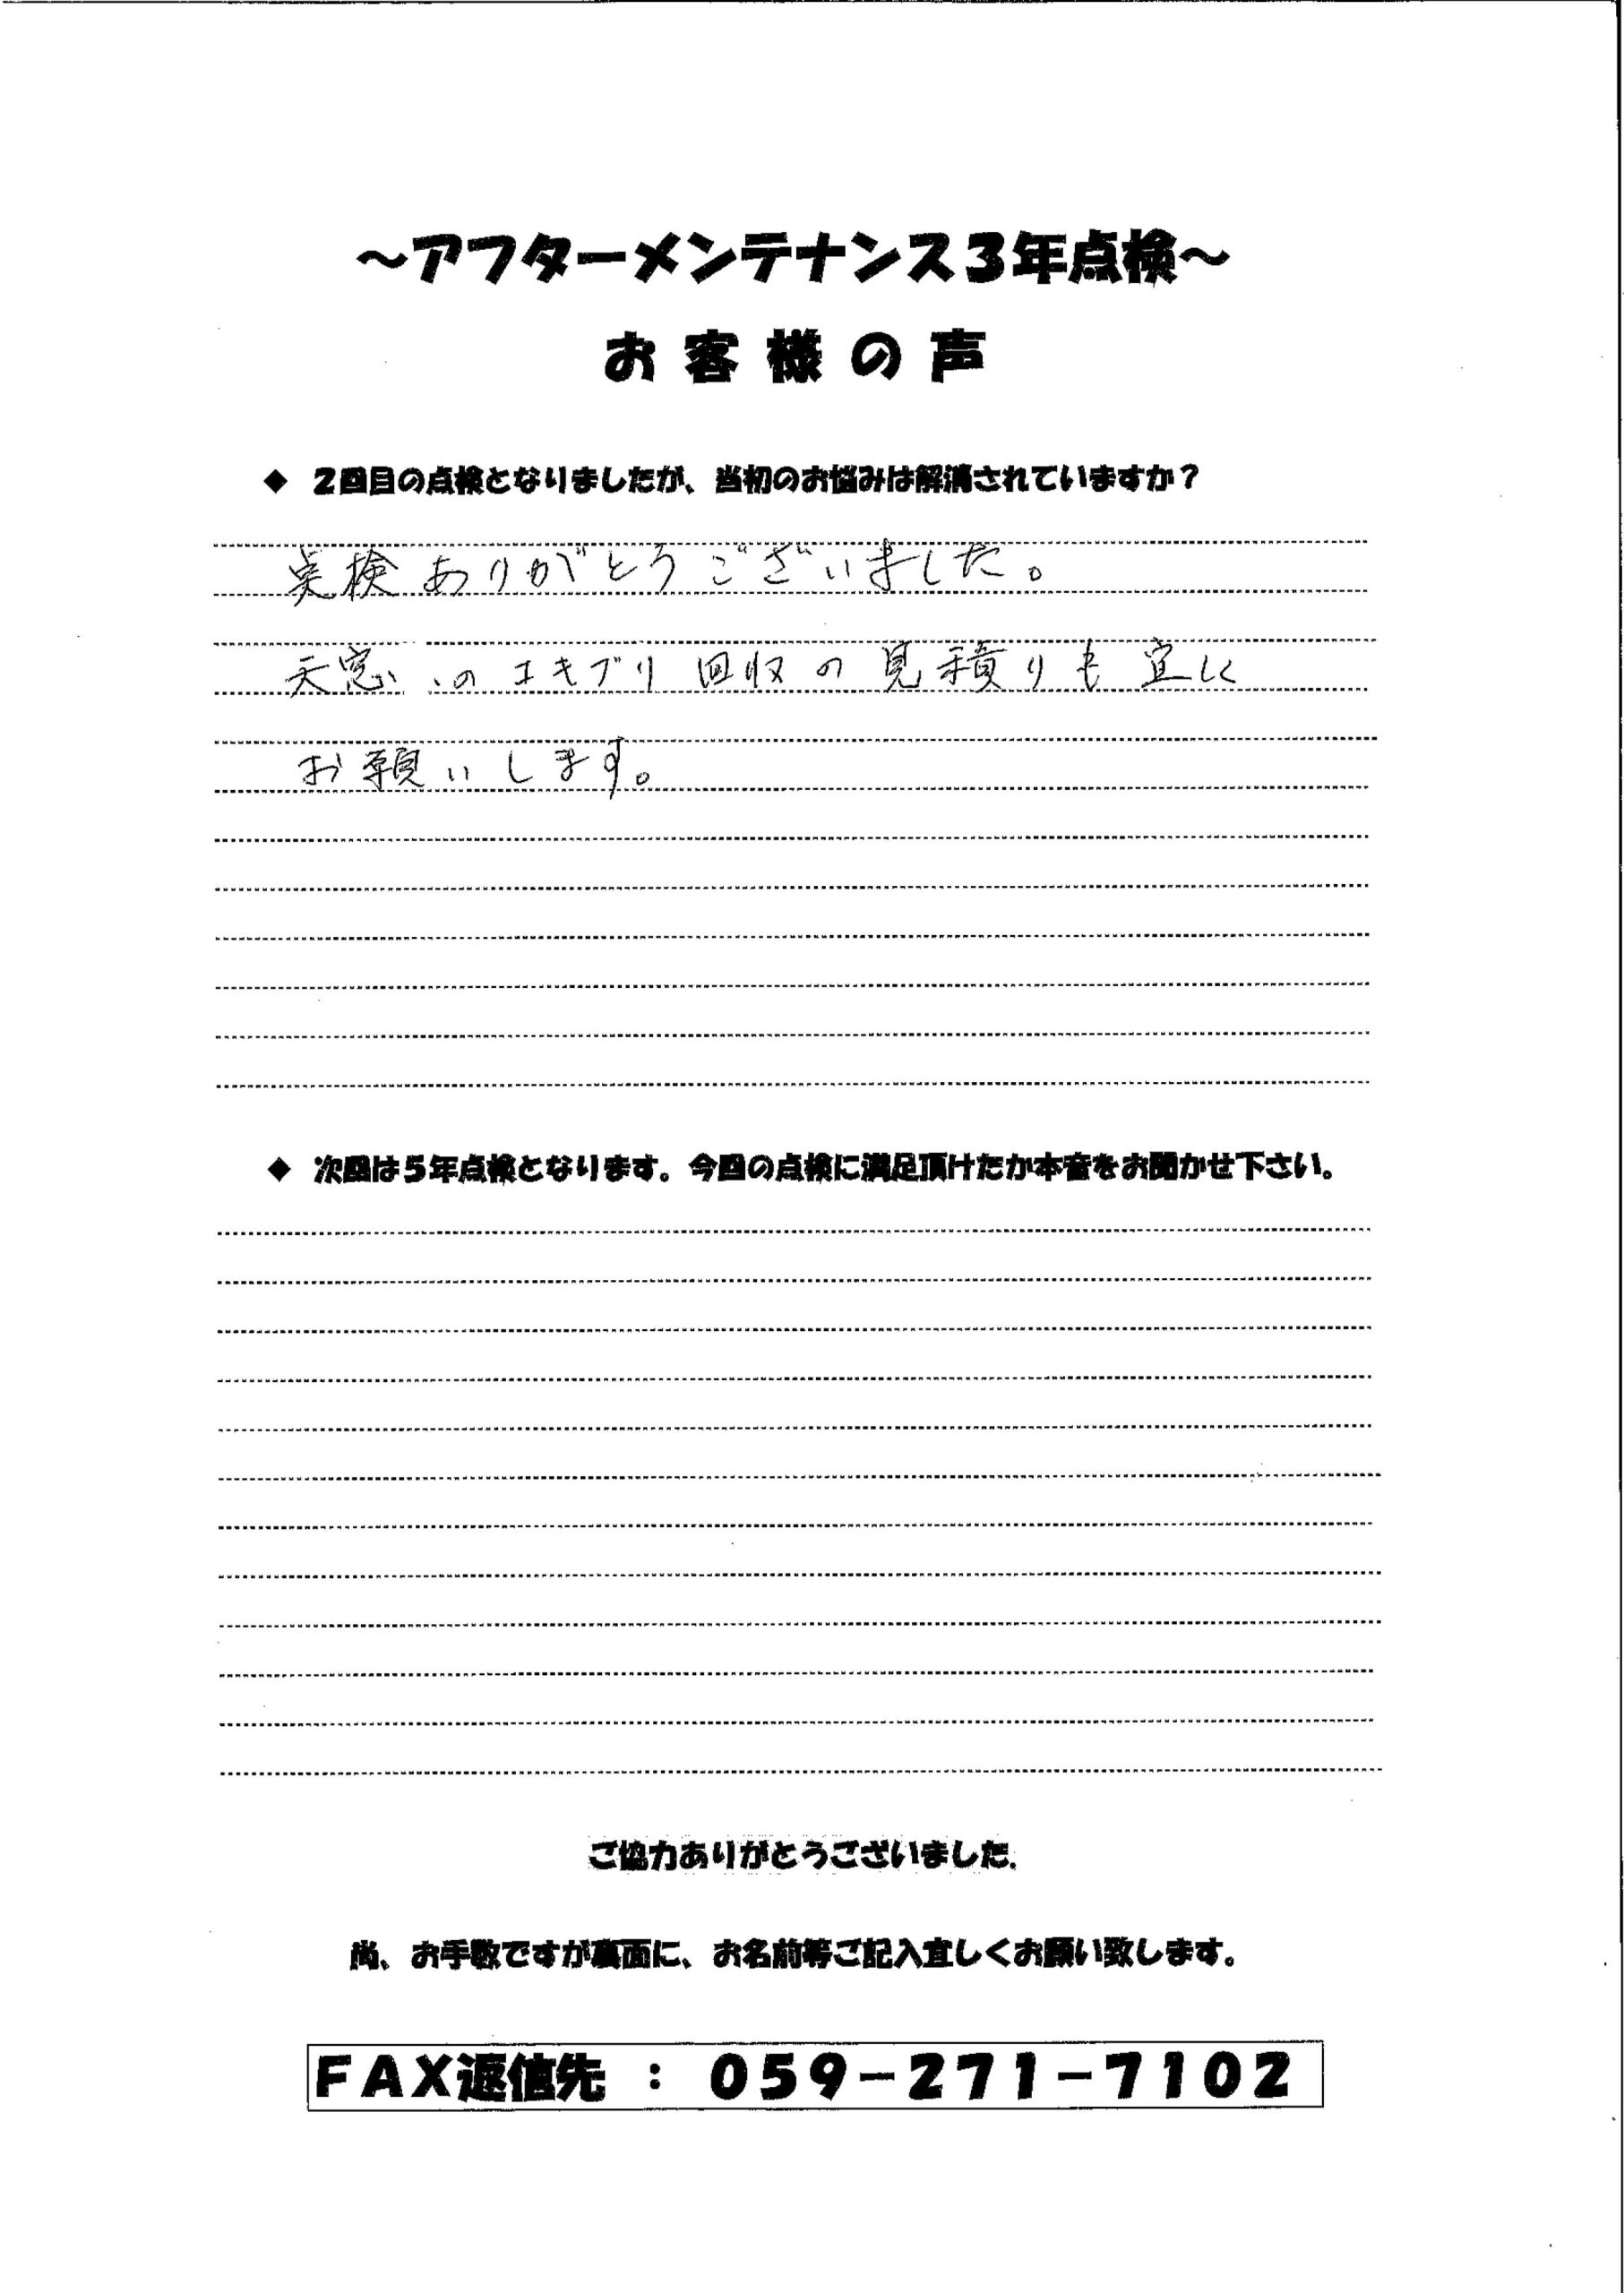 ～アフターメンテナンス３年点検～
お客様の声
◆ ２回目の点検となりましたが、当初のお悩みは解消されていますか？
点検ありがとうございました。
天窓、のエキブリ回収の見積りも宜しく
お願いします。
◆ 次回は５年点検となります。今回の点検に満足頂けたか本音をお聞かせ下さい。
ご協力ありがとうございました.
尚、お手数ですが裏面に、お名前等ご記入宜しくお願い致します。
ＦＡＸ返信先 ： ０５９－２７１－７１０２